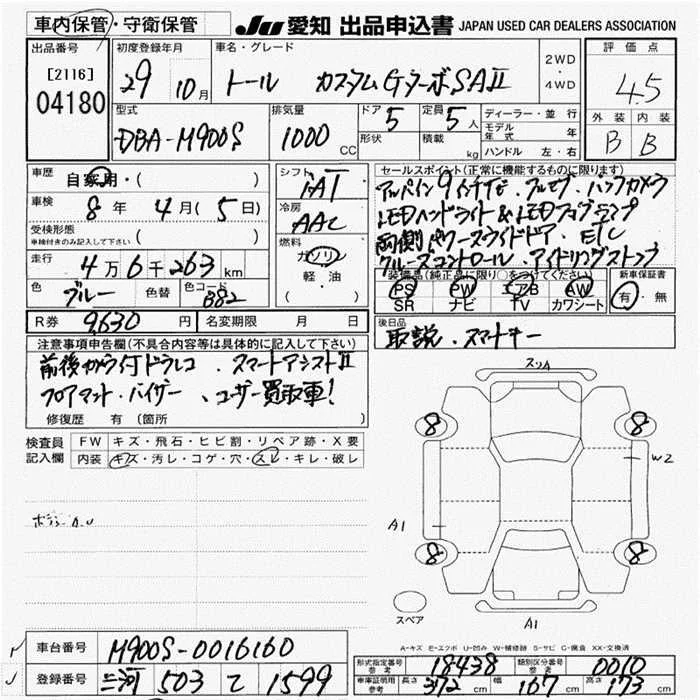 車内保管・守衛保管
JU 愛知 出品申込書 JAPAN USED CAR DEALERS ASSOCIATION
出品番号 初度登録年月 車名・グレード 評価点
[2116]
04180
29 10月 トール カスタムGターボSAⅡ 2WD・4WD 4.5
型式 排気量 ドア 5 定員 5人 ディーラー・並行 外装 内装
DBA-M900S 1000CC 形状 積載 kg モデル年式 年 B B
ハンドル 左・右
車歴 自家用・( ) シフト セールスポイント(正常に機能するものに限ります)
車検 8年 4月( 5日) IAT アルパイン9インチナビ・フルセグ・バックカメラ
受検形態 冷房 LEDハンドライト&LEDフォグランプ
車検付きのみ記入して下さい ( ) AAC 両側パワースライドドア・ETC
走行 4万6千263km 燃料 ガソリン クルーズコントロール・アイドリングストップ
軽・油
( )
色 ブルー 色替 色コード B82
装備品(純正品に限り○をつけてください) 新車保証書
PS PW エアB AW 有・無
SR ナビ TV カワシート
R券 9,630円 名変期限 月 日
後日品
取説・スマートキー
注意事項申告欄(不具合内容等は具体的に記入して下さい)
前後カメラ付ドラレコ・スマートアシストⅡ
フロアマット・バイザー、ユーザー買取車!
修復歴 有 〔箇所
検査員記入欄 FW キズ・飛石・ヒビ割・リペア跡・X要
内装 キズ・汚レ・コゲ・穴・スレ・キレ・破レ
スリA
8 8
W2
A1
8 8
スペア
A1
A-キズ E-エクボ U-凹み W-補修跡 S-サビ C-腐食 XX-交換済
車台番号 M900S-0016160
登録番号 三河 503 て 1599
形式指定番号 参考 18438 類別区分番号 参考 0010
車庫証明用 参考 長さ 372cm 幅 167cm 高さ 173cm